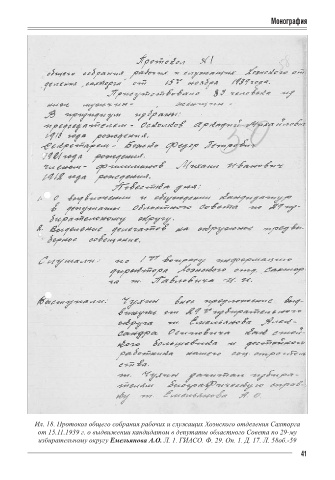 Монография
Протокол №1
общего собрания рабочих и служащих Хоэнского от
деления сахторга от 15го ноября 1939 года.
Присутствовало 83 человека из
них мужчин- женщин-
В президиум избраны:
председателем- Аркадий Михайлович
1913 года рождения.
Секретарем- Федор Петрович
1921 года рождения.
членом- Михаил Иванович
1918 года рождения.
Повестка дня:
1. О выдвижении и обсуждении кандидатур
в депутаты Областного Совета по 29 из-
бирательному округу.
2. Выделение делегатов на окружное предвы-
борное совещание.
Слушали: по 1му вопросу информацию
директора Хоэнского отд. Сахтор
га т. Павловича
Выступали: Чулин внес предложение выд-
винуть от 29 избирательного
округа т. Емельянова Алек-
сандра Осиповича как
кого большевика и достойного
работника нашего соц. строитель
ства.
т. Чулин зачитал избира-
телям биографическую справ-
ку т. Емельянова А.О.
Ил. 18. Протокол общего собрания рабочих и служащих Хоэнского отделения Сахторга
от 15.11.1939 г. о выдвижении кандидатом в депутаты областного Совета по 29-му
избирательному округу Емельянова А.О. Л. 1. ГИАСО. Ф. 29. Оп. 1. Д. 17. Л. 58об.-59
41